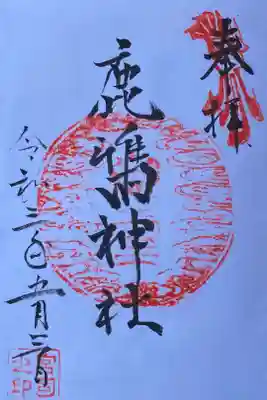 奉拝
鹿嶋神社
令和三年五月三日